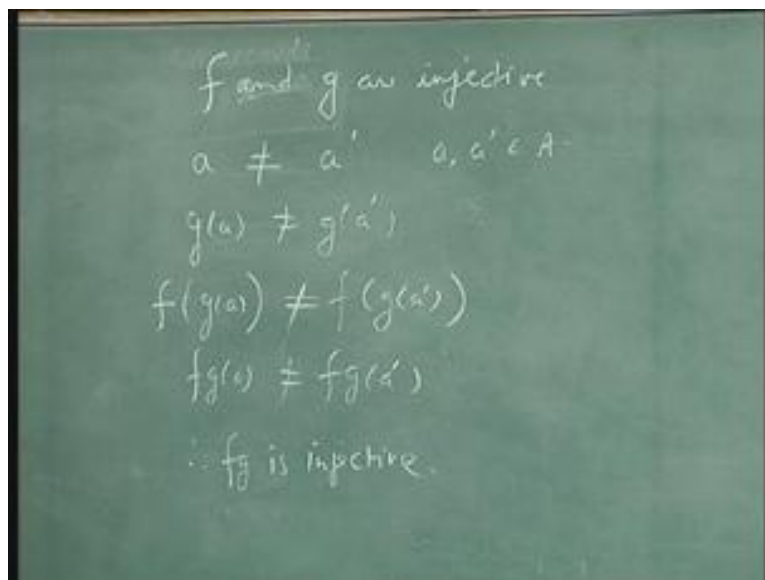 f and g are injective
a ≠ a' a, a' ε A
g(a) ≠ g(a')
f(g(a)) ≠ f(g(a'))
fg(a) ≠ fg(a')
∴ fg is injective.